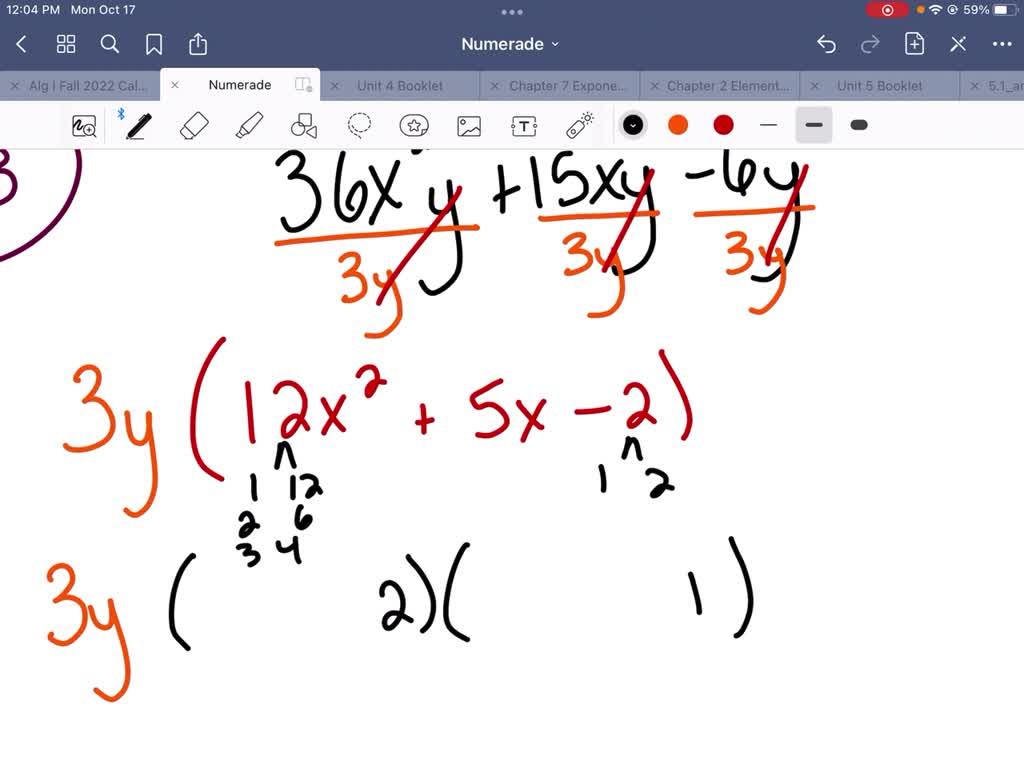 12:04 PM Mon Oct 17
59%
Numerade
Alg I Fall 2022 Cal...
Numerade
Unit 4 Booklet
Chapter 7 Expone...
Chapter 2 Element...
Unit 5 Booklet
5.1_ar
T
3
36x²y + 15xy - 6y
3y 3y 3y
3y (12x² + 5x - 2)
1 12 1 2
2 6
3 4
3y ( 2)( 1)